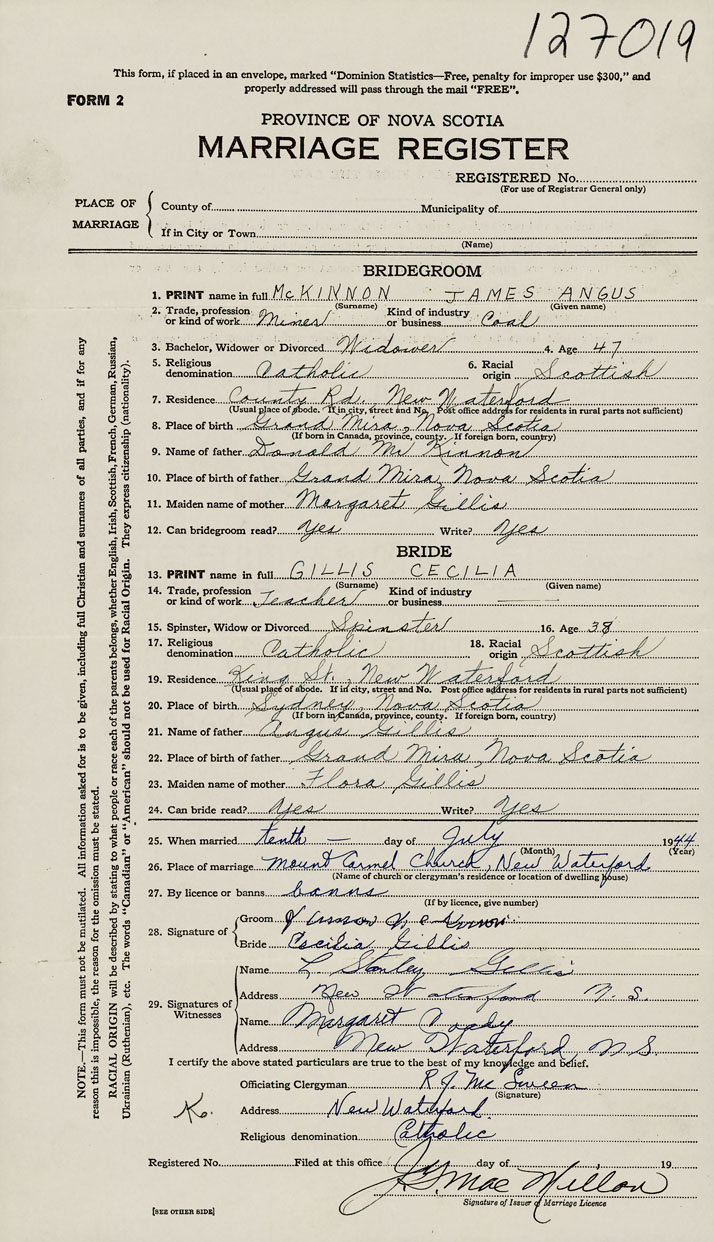 127019
This form, if placed in an envelope, marked "Dominion Statistics—Free, penalty for improper use $300," and
properly addressed will pass through the mail "FREE".
FORM 2
PROVINCE OF NOVA SCOTIA
MARRIAGE REGISTER
REGISTERED No.
(For use of Registrar General only)
PLACE OF MARRIAGE
County of Municipality of
If in City or Town
(Name)
BRIDEGROOM
1. PRINT name in full McKINNON JAMES ANGUS
(Surname) (Given name)
2. Trade, profession or kind of work Miner Kind of industry or business Coal
3. Bachelor, Widower or Divorced Widower 4. Age 47
5. Religious denomination Catholic 6. Racial origin Scottish
7. Residence County Rd., New Waterford
(Usual place of abode. If in city, street and No. Post office address for residents in rural parts not sufficient)
8. Place of birth Grand Mira, Nova Scotia
(If born in Canada, province, county. If foreign born, country)
9. Name of father Donald McKinnon
10. Place of birth of father Grand Mira, Nova Scotia
11. Maiden name of mother Margaret Gillis
12. Can bridegroom read? Yes Write? Yes
BRIDE
13. PRINT name in full GILLIS CECILIA
(Surname) (Given name)
14. Trade, profession or kind of work Teacher Kind of industry or business
15. Spinster, Widow or Divorced Spinster 16. Age 38
17. Religious denomination Catholic 18. Racial origin Scottish
19. Residence King St., New Waterford
(Usual place of abode. If in city, street and No. Post office address for residents in rural parts not sufficient)
20. Place of birth Sydney, Nova Scotia
(If born in Canada, province, county. If foreign born, country)
21. Name of father Angus Gillis
22. Place of birth of father Grand Mira, Nova Scotia
23. Maiden name of mother Flora Gillis
24. Can bride read? Yes Write? Yes
25. When married tenth — day of July 1944
(Month) (Year)
26. Place of marriage Mount Carmel Church, New Waterford
(Name of church or clergyman's residence or location of dwelling house)
27. By licence or banns banns
(If by licence, give number)
28. Signature of
Groom
Bride Cecilia Gillis
29. Signatures of Witnesses
Name L. Stanley Gillis
Address New Waterford N. S.
Name Margaret
Address New Waterford, N.S.
I certify the above stated particulars are true to the best of my knowledge and belief.
Officiating Clergyman R.J. McSween
(Signature)
K.
Address New Waterford.
Religious denomination Catholic
Registered No. Filed at this office day of 19
Signature of Issuer of Marriage Licence
[SEE OTHER SIDE]
NOTE.—This form must not be mutilated. All information asked for is to be given, including full Christian and surnames of all parties, and if for any
reason this is impossible, the reason for the omission must be stated.
RACIAL ORIGIN will be described by stating to what people or race each of the parents belongs, whether English, Irish, Scottish, French, German, Russian,
Ukrainian (Ruthenian), etc. The words "Canadian" or "American" should not be used for Racial Origin. They express citizenship (nationality).